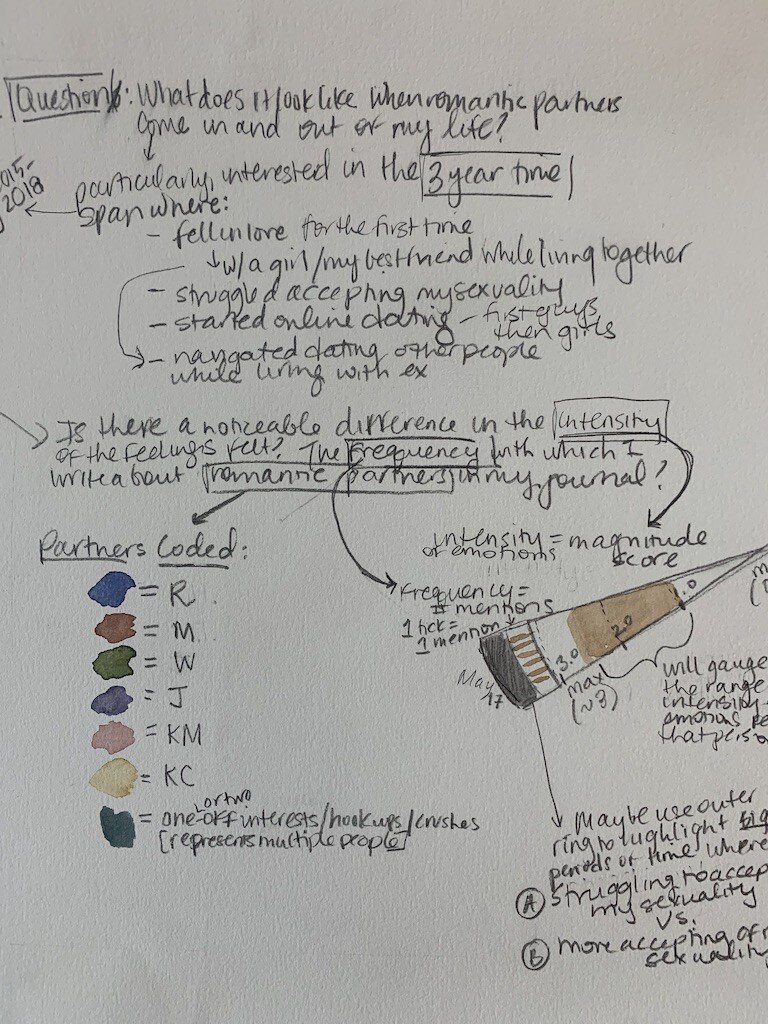 Question: What does it look like when romantic partners
come in and out of my life?
particularly interested in the 3 year time
span where:
2018
- fell in love for the first time
w/ a girl / my best friend while living together
- struggled accepting my sexuality
- started online dating - first guys
then girls
- navigated dating other people
while living with ex
Is there a noticeable difference in the intensity
of the feelings felt? The frequency with which I
write about romantic partners in my journal?
Partners Coded:
= R
= M
= W
= J
= KM
= KC
= one-off or two interests/hookups/crushes
[represents multiple people]
intensity = magnitude
of emotions score
Frequency =
# mentions
1 tick =
1 mention
May
17
3.0
2.0
max
(~3)
will gauge
the range
intensity
emotions
that
Maybe use outer
ring to highlight
periods of time where
(A) struggling to
my sexuality
vs.
(B) more accepting of
sexuality